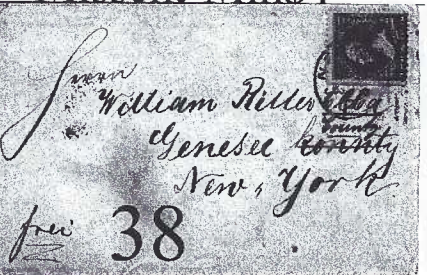 Herrn
William Ritter Elba
County
Genesee County
New, York
frei 38